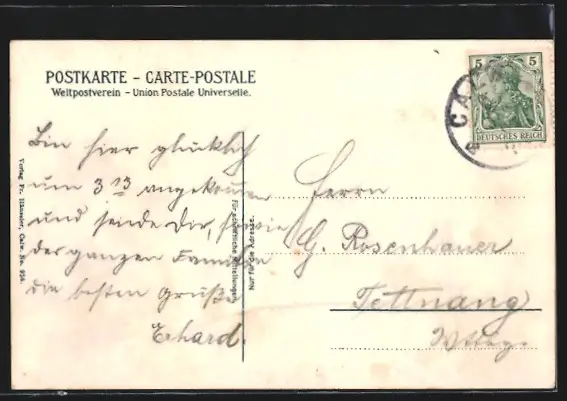 POSTKARTE – CARTE-POSTALE
Weltpostverein – Union Postale Universelle.
5 5
DEUTSCHES REICH
CA
Bin hier glücklich
um 3 13 angekommen
und sende Dir, sowie
der ganzen Familie
die besten Grüße
Erhard.
Herrn
G. Rosenhauer
Tettnang
Für schriftliche Mitteilungen
Nur für die Adresse.
Verlag Fr. Häussler, Calw. No.